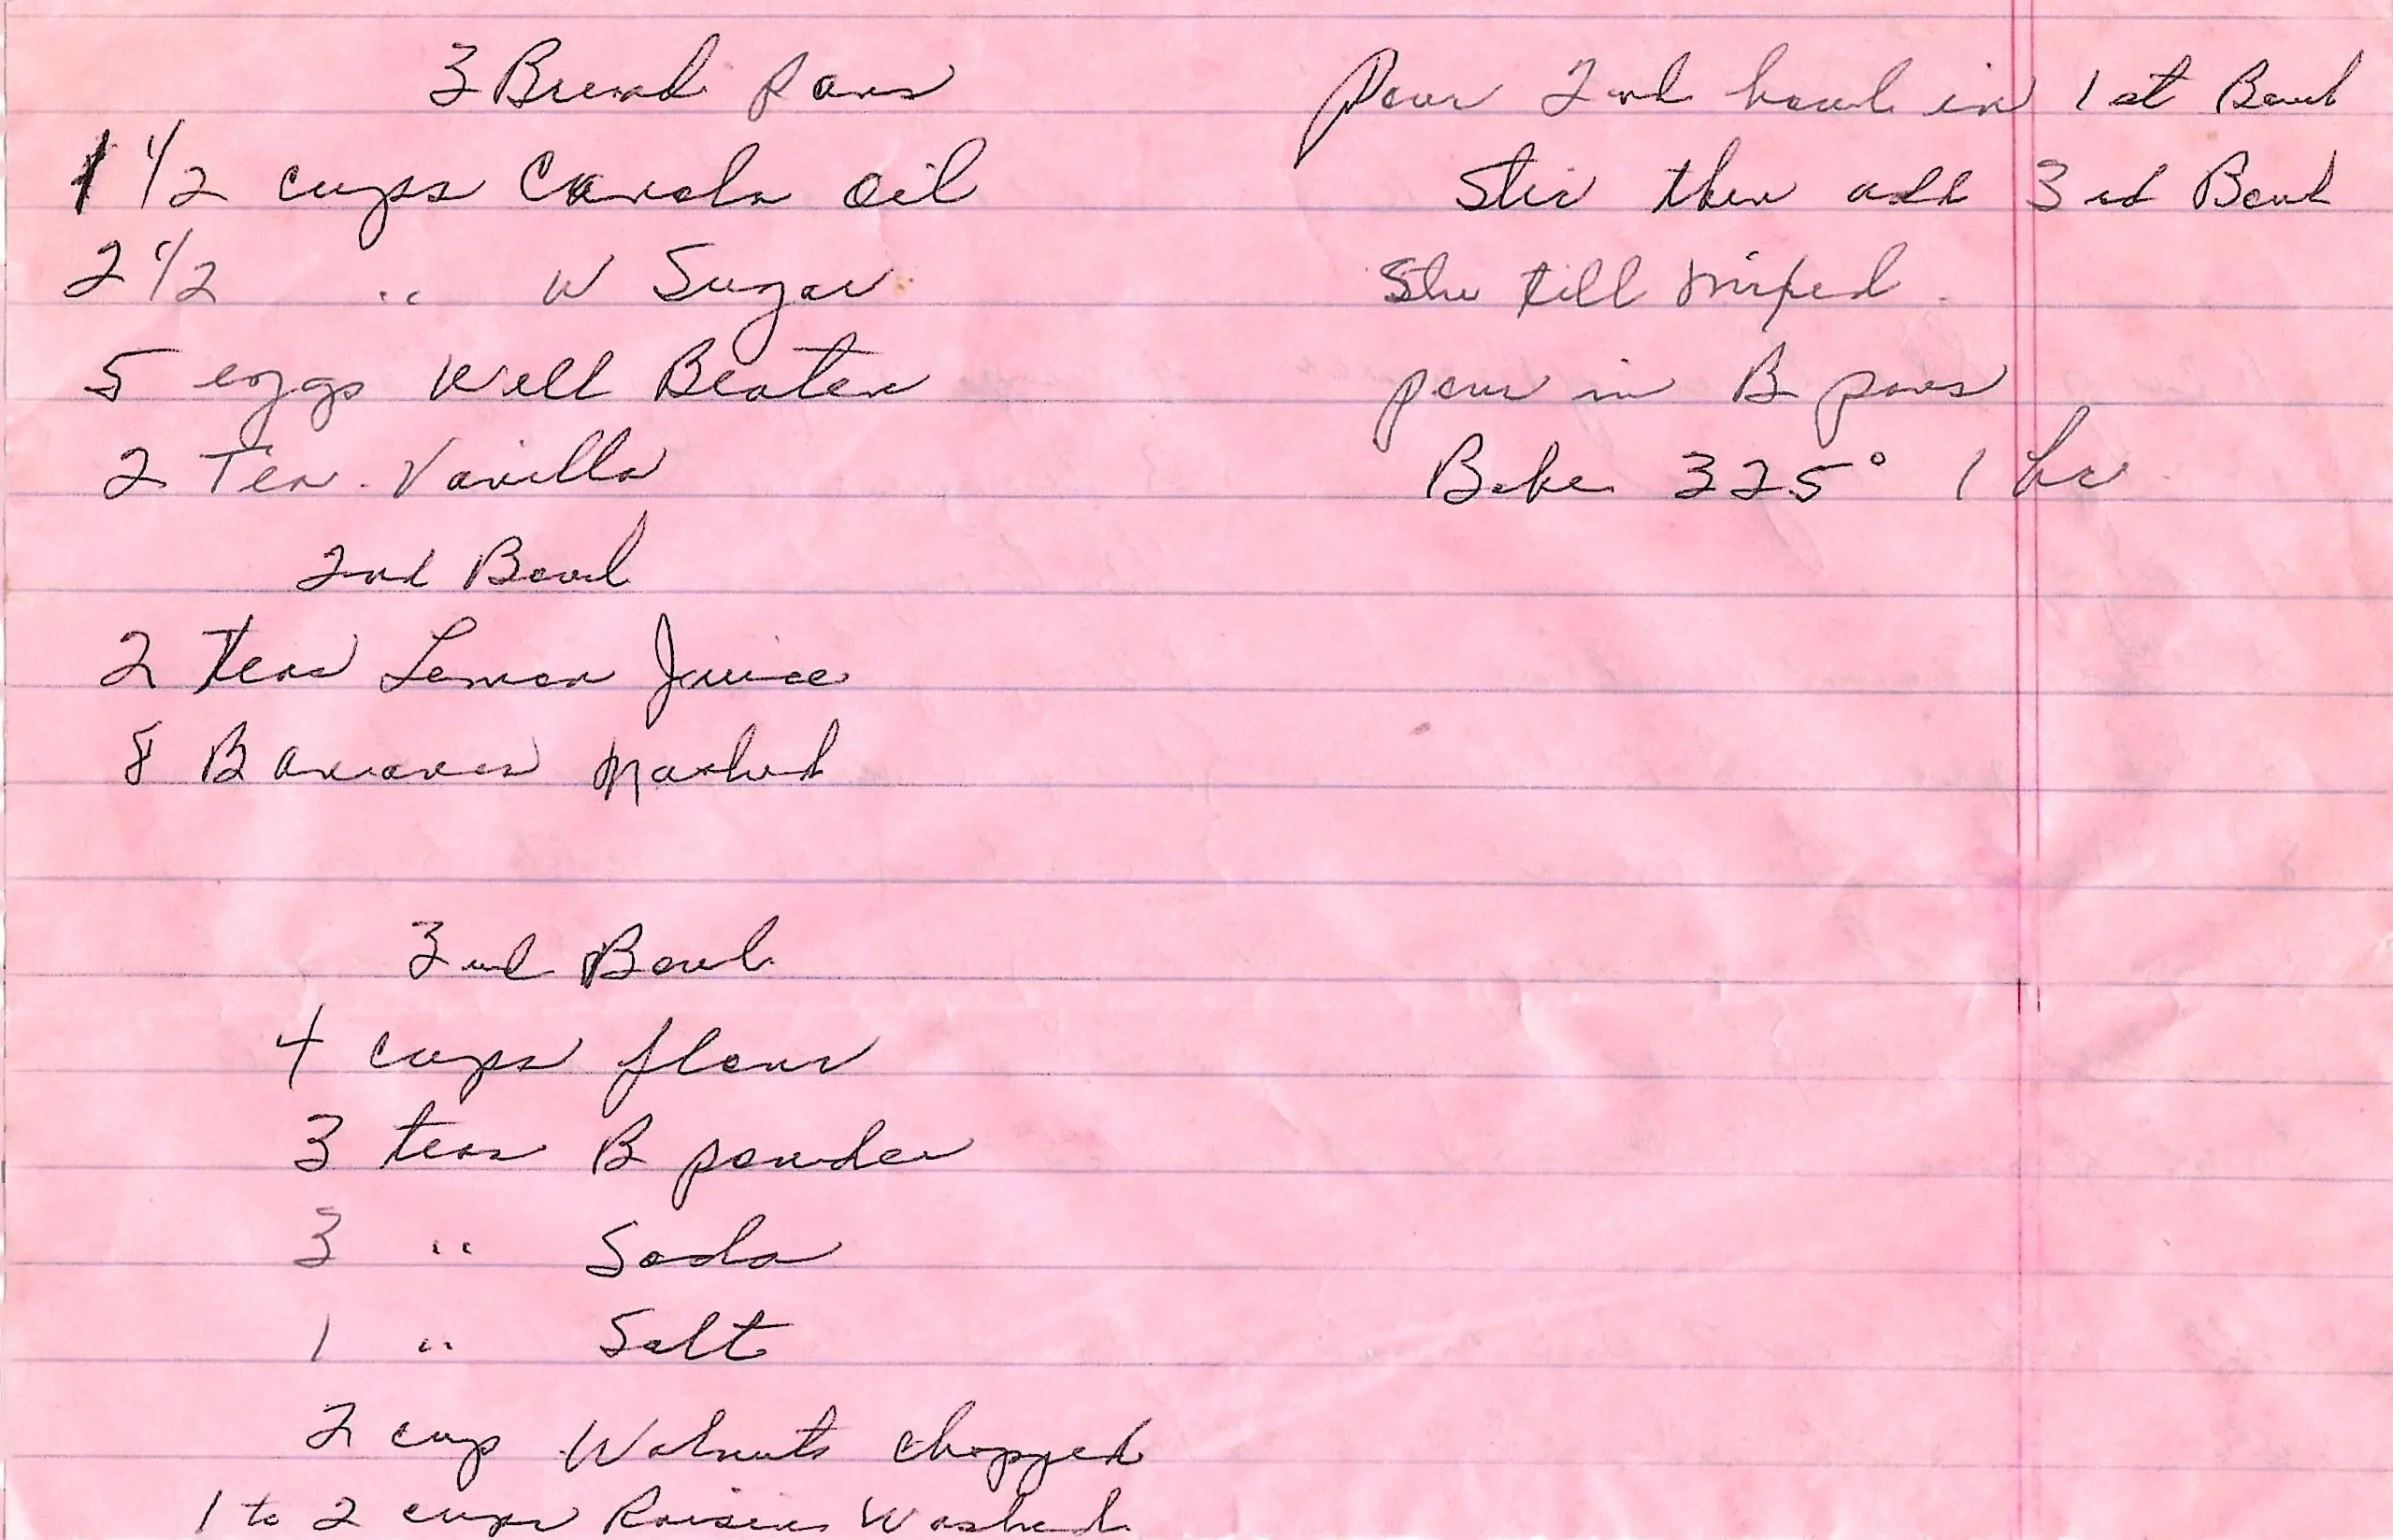 3 Bread Pans
1 1/2 cups Canola Oil
2 1/2 " W Sugar
5 eggs Well Beaten
2 Tea. Vanilla
2nd Bowl
2 teas Lemon Juice
8 Bananas Mashed
3rd Bowl
4 cups flour
3 teas B powder
3 " Soda
1 " Salt
2 cup Walnuts chopped
1 to 2 cups Raisins Washed
Pour 2nd bowl in 1st Bowl
Stir then add 3rd Bowl
Stir till mixed.
pour in B pans
Bake 325° 1 hr